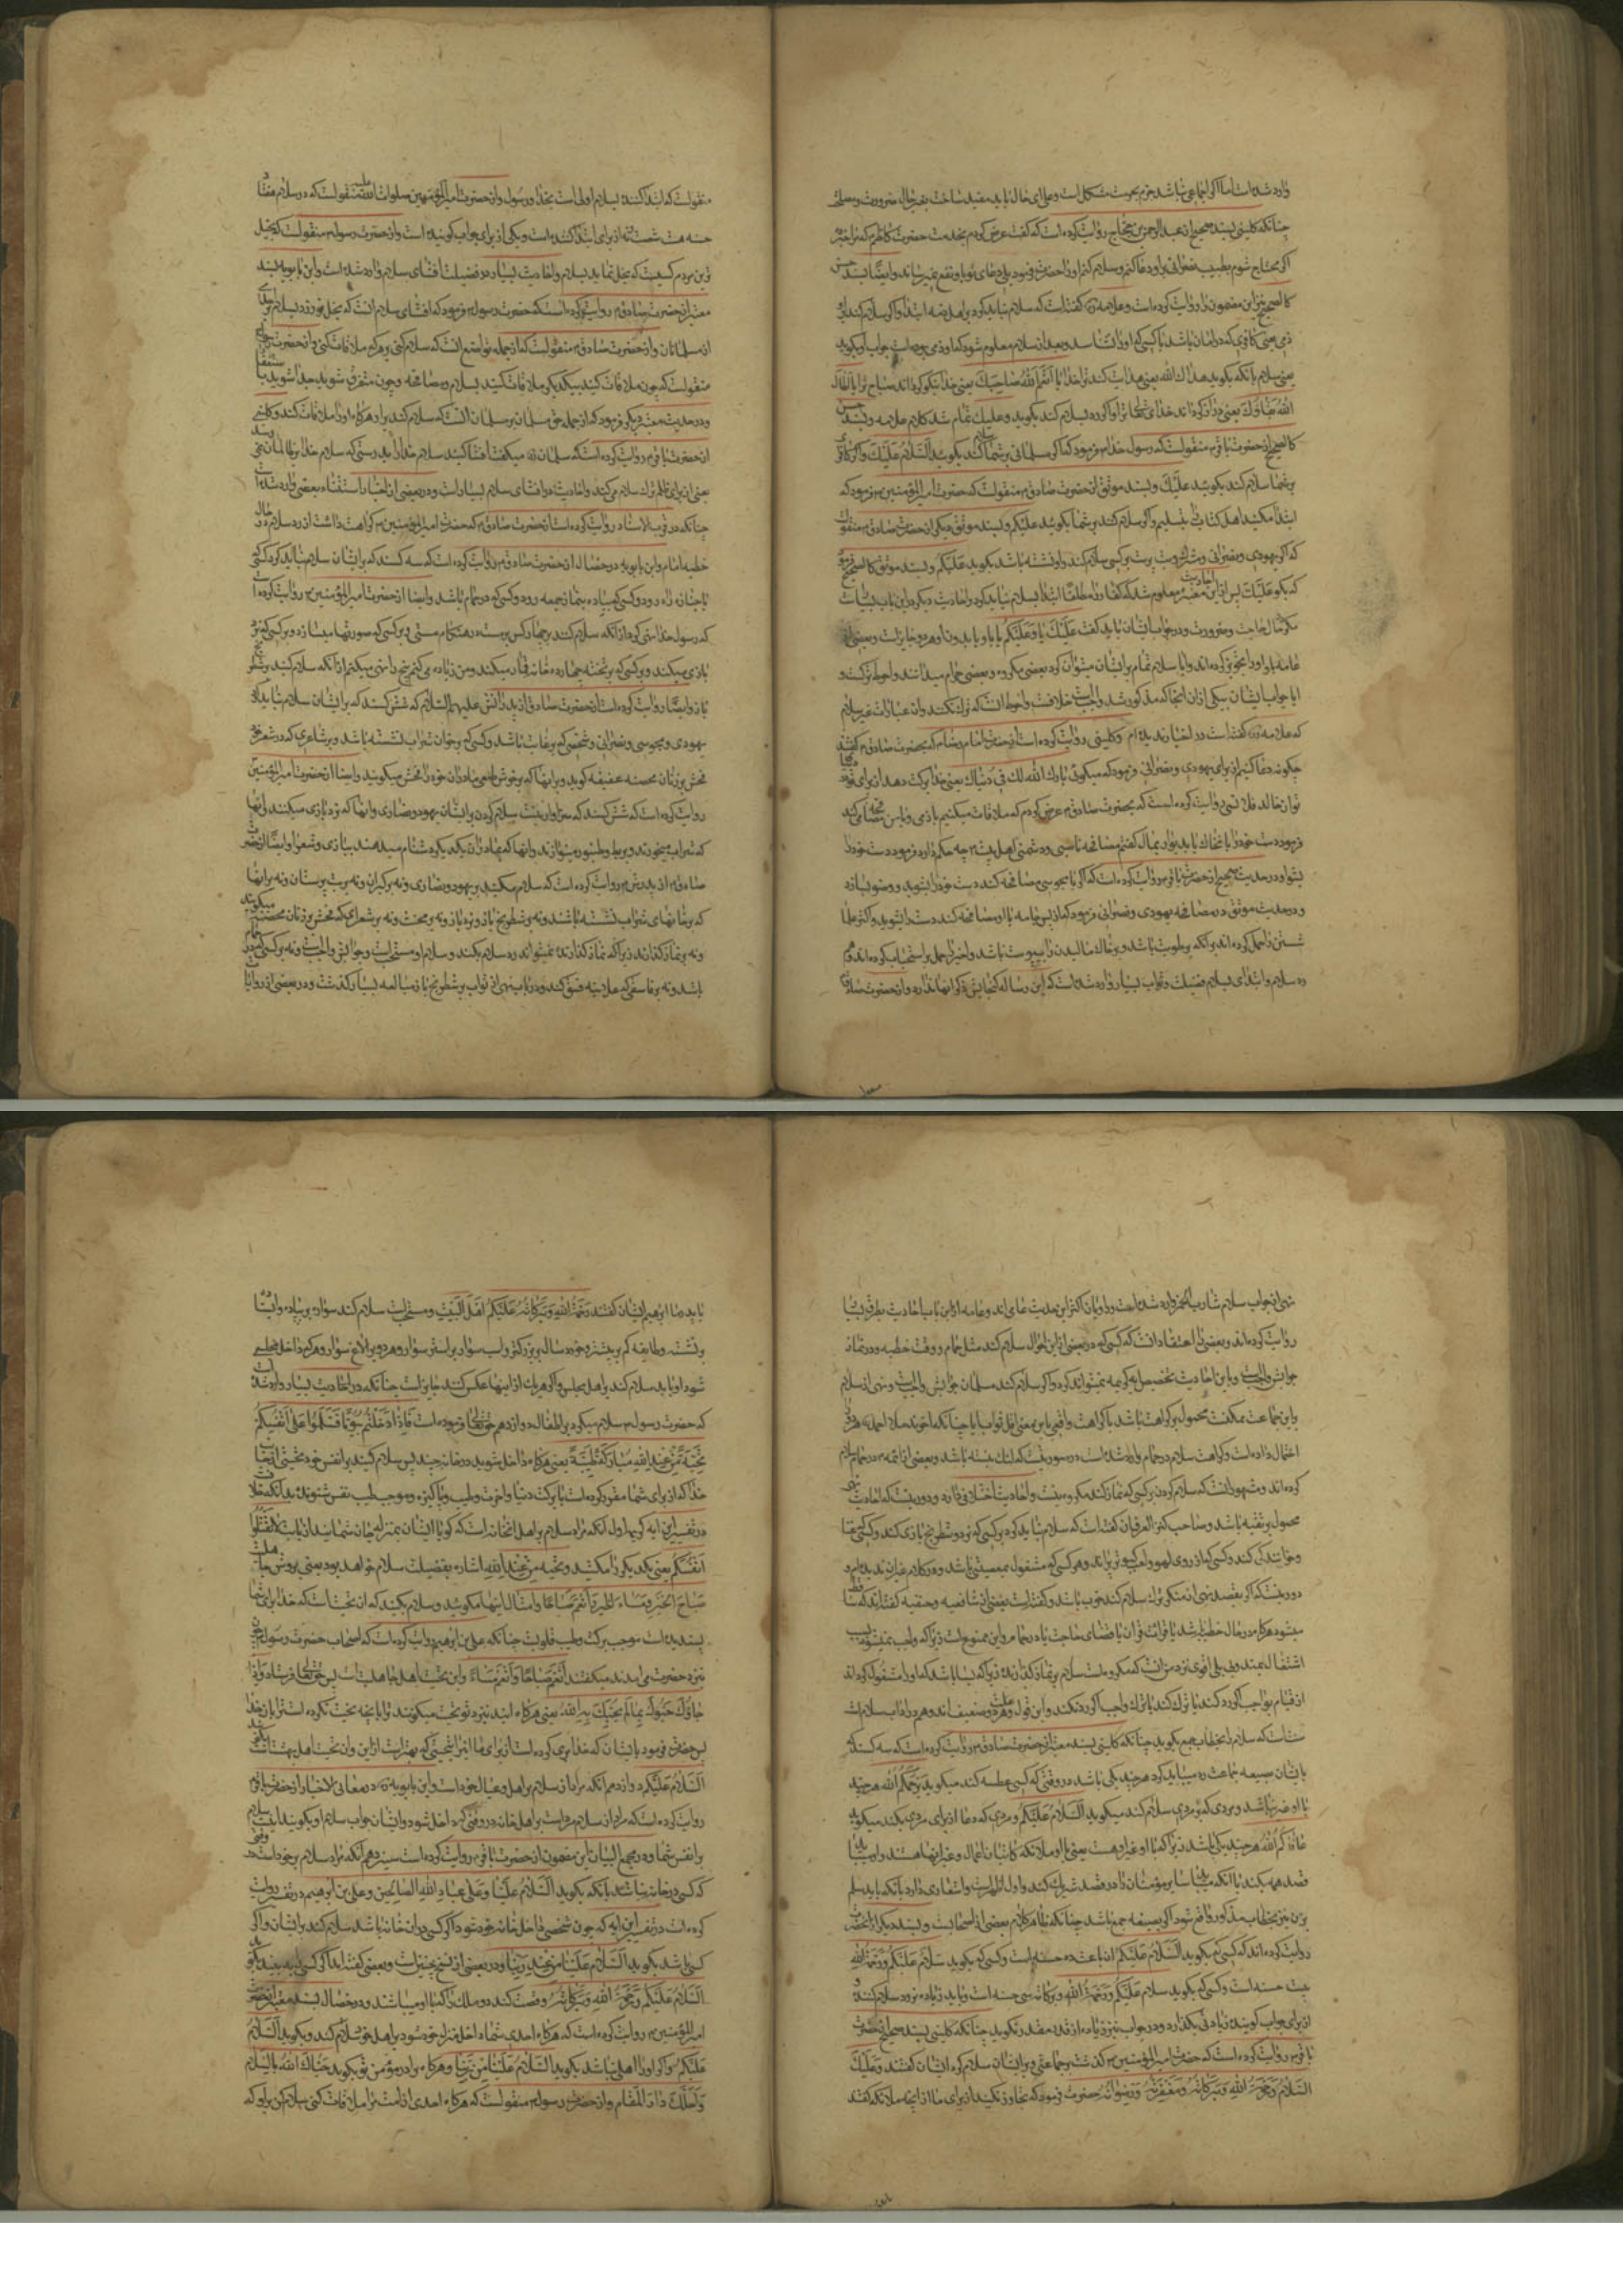 وارد شده است اما اگر اجماعی نباشد جزم بحرمت مشکل است و علی ای حال باید مقید ساخت بغیر حال ضرورت و مصلحت
چنانکه کلینی بسند صحیح از عبدالرحمن بن حجاج روایت کرده است که گفت عرض کردم بخدمت حضرت کاظم که مرا خبر ده
اگر محتاج شوم بطبیب نصرانی بر او دعا کنم و سلام کنم او را حضرت فرمود بلی دعای تو باو نفع نمیرساند و ایضا بسند حسن
کالصحیح نیز این مضمون را روایت کرده است و علامه ره گفته است که سلام نباید کرد بر اهل ذمه ابتدا و اگر سلام کند بر او
ذمی یعنی کافری که در امان باشد یا کسی که او را نشناسد و بعد از سلام معلوم شود که او ذمی بوده است جواب او بگوید
یعنی سلام بآنکه بگوید هداک الله یعنی هدایت کند ترا خدا یا انعم الله صباحک یعنی خدا نیکو گرداند صباح ترا یا اطال
الله بقاؤک یعنی دراز گرداند خدای تعالی بقا ترا و اگر رد سلام کند بگوید و علیک تمام شد کلام علامه و بسند حسن
کالصحیح از حضرت باقر ع منقولست که رسول خدا ص فرمود که اگر مسلمانی بر شما سلام کند بگوئید السلام علیک و اگر کافر
بر شما سلام کند بگوئید علیک و بسند موثق از حضرت صادق ع منقولست که حضرت امیر المؤمنین ع فرمود که
ابتدا مکنید اهل کتاب را بتسلیم و اگر سلام کنند بر شما بگوئید علیکم و بسند موثق دیگر از حضرت صادق ع منقولست
که اگر یهودی و نصرانی و مشرک و بت پرست بر کسی سلام کند و او نشسته باشد بگوید علیکم و بسند موثق کالصحیح فرمود
که بگو علیک پس از این احادیث معتبره معلوم شد که کفار را مطلقا ابتدا بسلام نباید کرد و احادیث دیگر در این باب بسیار است
مگر حال حاجت و ضرورت و در جواب ایشان باید گفت علیک یا و علیکم با واو یا بدون واو هر دو جایز است و بعضی از
عامه با واو را تجویز نکرده اند و آیا سلام تمام بر ایشان میتوان کرد بعضی مکروه و بعضی حرام میدانند و احوط ترکست و
آیا جواب ایشان بیکی از آن انحا که مذکور شد واجب است خلافست و احوط آنست که ترک نکنند و آن عبارات غیر سلام
که علامه ره گفته است در اخبار ندیده ام و کلینی روایت کرده است از حضرت امام رضا ع که بحضرت صادق ع گفتند
چگونه دعا کنیم از برای یهودی و نصرانی فرمود که میگوئی بارک الله لک فی دنیاک یعنی خدا برکت دهد از برای تو در
توان خالد قلانسی روایت کرده است که بحضرت صادق ع عرض کردم که ملاقات میکنیم با ذمی و با من مصافحه کند
فرمود دست خود را بخاک یا بدیوار بمال گفتم مصافحه ناصبی و دشمنی اهل بیت چه حکم دارد فرمود دست خود را
بشو و در حدیث صحیح از حضرت باقر ع روایت کرده است که اگر با مجوسی مصافحه کند دست خود را بشوید و وضو نسازد
و در حدیث موثق در مصافحه یهودی و نصرانی فرمود که از پس جامه با او مصافحه کند دست را بشوید و اکثر علما
شستن را حمل کرده اند بر آنکه برطوبت باشد و بر خاک مالیدن را بیبوست باشد و اخیر را حمل بر استحباب کرده اند و در
رد سلام و ابتدای بسلام فضیلت و ثواب بسیار وارد شده است که این رساله گنجایش ذکر آنها ندارد و از حضرت صادق
منقولست که ابتدا کننده بسلام اولی است بخدا و رسول و از حضرت امیر المؤمنین صلوات الله علیه منقولست که در سلام هفتاد
حسنه هست شصت و نه از برای ابتدا کننده است و یکی از برای جواب گوینده است و از حضرت رسول ص منقولست که بخیل
ترین مردم کسیست که بخل نماید بسلام و احادیث بسیار در فضیلت افشای سلام وارد شده است و ابن بابویه بسند
معتبر از حضرت صادق ع روایت کرده است که حضرت رسول ص فرمود که افشای سلام آنست که بخل نورزد بسلام بر احدی
از مسلمانان و از حضرت صادق ع منقولست که از جمله تواضع آنست که سلام کنی بر هر که ملاقات کنی و از حضرت رسول
منقولست که چون ملاقات کنید بیکدیگر ملاقات کنید بسلام و مصافحه و چون متفرق شوید جدا شوید باستغفار
و در حدیث معتبر دیگر فرمود که از جمله حق مسلمان بر مسلمان آنست که سلام کند بر او هرگاه او را ملاقات کند و کلینی
از حضرت باقر ع روایت کرده است که سلمان ره میگفت افشا کنید سلام خدا را بدرستی که سلام خدا بظالمان نمیرسد
یعنی از برای ظلم ترک سلام مکنید و احادیث در افشای سلام بسیار است و در بعضی از اخبار استثناء بعضی وارد شده است
چنانکه در قرب الاسناد روایت کرده است از حضرت صادق ع که حضرت امیر المؤمنین ع کراهت داشت از رد سلام در حال
خطبه امام و ابن بابویه در خصال از حضرت صادق ع روایت کرده است که سه کسند که بر ایشان سلام نباید کرد کسی که
با جنازه راه رود و کسی که پیاده بنماز جمعه رود و کسی که در حمام باشد و ایضا از حضرت امیر المؤمنین ع روایت کرده است
که رسول خدا نهی کرد از آنکه سلام کنند بر چهار کس بر مست در هنگام مستی و بر کسی که صورتها میسازد و بر کسی که نرد
بازی میکند و بر کسی که بر تخته چهارده خانه قمار میکند و من زیاده میکنم پنجم را نهی میکنم از آنکه سلام کنید بر شطرنج
باز و ایضا روایت کرده است از حضرت صادق از پدرانش علیهم السلام که شش کسند که بر ایشان سلام نباید کرد
یهودی و مجوسی و نصرانی و شخصی که بر غایت باشد و کسی که بر خوان شراب نشسته باشد و بر شاعری که در شعر خود
فحش بزنان محصنه عفیفه گوید و بر آنها که بر خوش طبعی مادران خود را فحش میگویند و ایضا از حضرت امیر المؤمنین
روایت کرده است که شش کسند که سزاوار نیست سلام کردن بر ایشان یهود و نصاری و آنها که نرد بازی میکنند و آنها
که شراب میخورند و بربط و طنبور مینوازند و آنها که مادران یکدیگر را دشنام میدهند ببازی و شعرا و ایضا از حضرت
صادق ع از پدرش ع روایت کرده است که سلام مکنید بر یهود و نصاری و نه بر گبران و نه بر بت پرستان و نه بر آنها
که بر خوانهای شراب نشسته باشند و نه بر شطرنج باز و نرد باز و نه بر مخنث و نه بر شعرائی که فحش بر زنان محصنه میگویند
و نه بر نماز گذارنده زیرا که نماز گذارنده نمیتواند رد سلام بکند و سلام او مستحب است و جوابش واجب است و نه بر کسی که در حمام
باشد و نه بر فاسقی که علانیه فسق کند و در باب نهی از ثواب بر شطرنج باز مبالغه بسیار گذشت و در بعضی از روایات
نهی از جواب سلام شارب الخمر وارد شده است و راویان اکثر این حدیث عامی اند و عامه از این باب احادیث بطرق بسیار
روایت کرده اند و بعضی را اعتقاد آنست که کسی که در بعضی از این احوال سلام کند مثل حمام و وقت خطبه و در نماز
جوابش واجب است و باین احادیث تخصیص آیه کریمه نمیتواند کرد و اگر سلام کند مسلمان جوابش واجب است و نهی از سلام
احتمال داده است و کراهت سلام در حمام وارد شده است در صورتیست که لنگ نبسته باشد و بعضی از ائمه ع در حمام سلام
کرده اند و مشهور آنست که سلام کردن بر کسی که نماز کند مکروه نیست و احادیث اختلافی دارد و دور نیست که احادیث نهی
محمول بر تقیه باشد و صاحب کنز العرفان گفته است که سلام نباید کرد بر کسی که نرد و شطرنج بازی کند و کسی که غنا
و خوانندگی کند و کسی که از روی لهو و لعب کبوتر پراند و هر کسی که مشغول بمعصیتی باشد و در کلام غیر آن ندیده ام و
دور نیست که اگر بقصد نهی از منکر ترک سلام کند خوب باشد و گفته است بعضی از شافعیه و حنفیه گفته اند که ساقط
میشود هرگاه در حال خطبه باشد یا قرائت قرآن یا قضای حاجت یا در حمام و این ممنوع است زیرا که واجب بمستحب
اشتغال بمندوبی بلی اقوی نزد من آنست که مکروهست سلام بر نماز گذارنده زیرا که بسا باشد که او را مشغول گرداند
از قیام بواجب اگر رد کند یا ترک کند یا ترک واجب اگر رد نکند و این قول و هر دو ضعیف اند و هم در آداب سلام است
سنت است که سلام را بخطاب جمع بگوید چنانکه کلینی بسند معتبر از حضرت صادق ع روایت کرده است که سه کسند که
با ایشان بصیغه جماعت رد میباید کرد هر چند یکی باشد در وقتی که کسی عطسه کند میگوید یرحمکم الله هر چند
با او غیری نباشد و مردی که بر مردی سلام کند میگوید السلام علیکم و مردی که دعا از برای مردی بکند میگوید
عافاکم الله هر چند یکی باشد زیرا که با او غیر او هست یعنی با او ملائکه کاتبان اعمال و غیر آنها هستند و آدمی باید
روایت کرده اند که کسی که بگوید السلام علیکم آن باعث ده حسنه است و کسی که بگوید سلام علیکم و رحمة الله
بیست حسنه است و کسی که بگوید سلام علیکم و رحمة الله و برکاته سی حسنه است و باید زیاده نرود سلام کننده و
از برای جواب گوینده زیادتی بگذارد و در جواب نیز زیاده از قدر مقدر نگوید چنانکه کلینی بسند صحیح از حضرت
باقر ع روایت کرده است که حضرت امیر المؤمنین ع گذشت بر جماعتی و بر ایشان سلام کرد ایشان گفتند و علیک
السلام و رحمة الله و برکاته و مغفرته و رضوانه حضرت فرمود که تجاوز نکنید از برای ما از آنچه ملائکه گفتند
با پدر ما ابراهیم ایشان گفتند رحمة الله و برکاته علیکم اهل البیت و مستحب است سلام کند سوار بر پیاده و ایستاده
بر نشسته و طایفه کم بر بیشتر و خورد سال بر بزرگتر و اسب سوار بر استر سوار و هر دو بر الاغ سوار و هر که داخل مجلسی
شود او باید سلام کند بر اهل مجلس و اگر هر یک از اینها عکس کنند جایز است چنانکه در احادیث بسیار وارد شده است
که حضرت رسول ص سلام میکرد بر اطفال دوازدهم حق تعالی فرموده است فاذا دخلتم بیوتا فسلموا علی انفسکم
تحیة من عند الله مبارکة طیبة یعنی هرگاه داخل شوید در خانه چند پس سلام کنید بر انفس خود تحیتی از جانب
خدا که از برای شما مقرر کرده است با برکت دنیا و آخرت و طیب و پاکیزه و موجب طیب نفس شنونده بدانکه خلافست
در تفسیر این آیه کریمه اول آنکه مراد سلام بر اهل آنخانه است که گویا ایشان بمنزله جان شمایند از بابت لا تقتلوا
انفسکم یعنی یکدیگر را مکشید و تحیة من عند الله اشاره بفضیلت سلام خواهد بود یعنی بروش جاهلیت
صباح الخیر و مساء الخیر و انعم صباحا و امثال اینها مگوئید و سلام بکنید که آن تحیت است که خدا برای شما
پسندیده است موجب برکت و طیب قلوبست چنانکه علی بن ابراهیم روایت کرده است که اصحاب حضرت رسول چون
نزد حضرت می آمدند میگفتند انعم صباحا و انعم مساء و این تحیت اهل جاهلیت است پس حق تعالی فرستاد و اذا
جاؤک حیوک بما لم یحیک به الله یعنی هرگاه آیند نزد تو تحیت میگویند ترا بآنچه تحیت نکرده است ترا بآن خدا
پس حضرت فرمود بایشان که خدا بدل کرده است از برای ما تحیتی که بهتر است از این و آن تحیت اهل بهشت است
السلام علیکم دوازدهم آنکه مراد سلام بر اهل و عیال خود است و ابن بابویه ره در معانی الاخبار از حضرت باقر ع
روایت کرده است که مراد از سلام مرد است بر اهل خانه در وقتی که داخل شود و ایشان جواب سلام او بگویند اینست سلام
بر انفس شما و در مجمع البیان این مضمون از حضرت باقر ع روایت کرده است سیزدهم آنکه مراد سلام بر خود است
که کسی در خانه نباشد بآنکه بگوید السلام علینا و علی عباد الله الصالحین و علی بن ابراهیم در تفسیر روایت
کرده است در تفسیر این آیه که چون شخصی داخل خانه خود شود اگر کسی در آنخانه باشد سلام کند بر ایشان و اگر
کسی نباشد بگوید السلام علینا من عند ربنا و در بعضی از نسخ چنین است و بعضی گفته اند اگر کسی را نه بیند بگوید
السلام علیکم و رحمة الله و برکاته و قصد کند دو ملک را که با او میباشند و در خصال بسند معتبر از حضرت
امیر المؤمنین ع روایت کرده است که هرگاه احدی شما داخل منزل خود شود بر اهل خود سلام کند و بگوید السلام
علیکم و اگر او را اهلی نباشد بگوید السلام علینا من ربنا و هرگاه برادر مؤمن تو بگوید حیاک الله بالسلام
و احلک دار المقام و از حضرت رسول ص منقولست که هرگاه احدی از امت مرا ملاقات کنی سلام کن بر او که